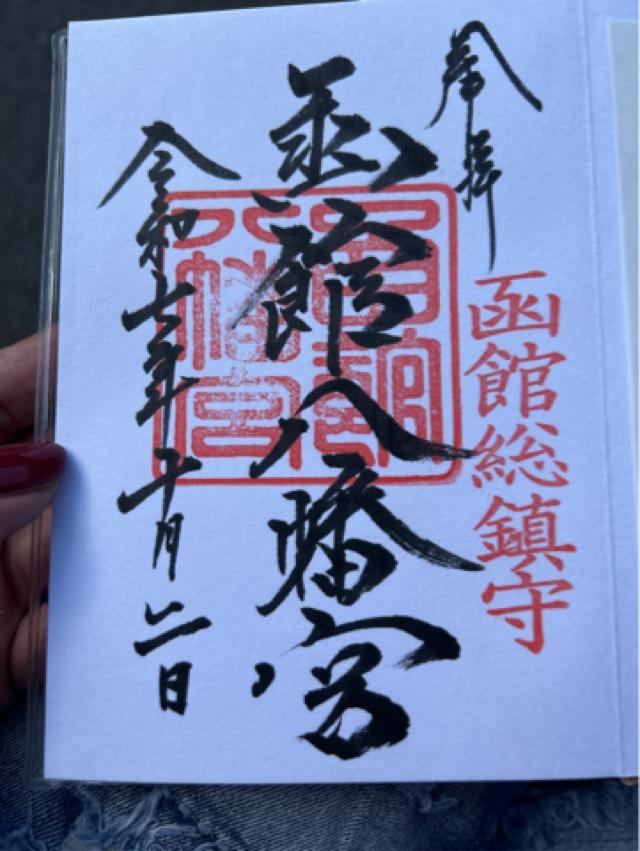 奉拝
函館総鎮守
函館八幡宮
函館八幡宮
令和七年十月二日